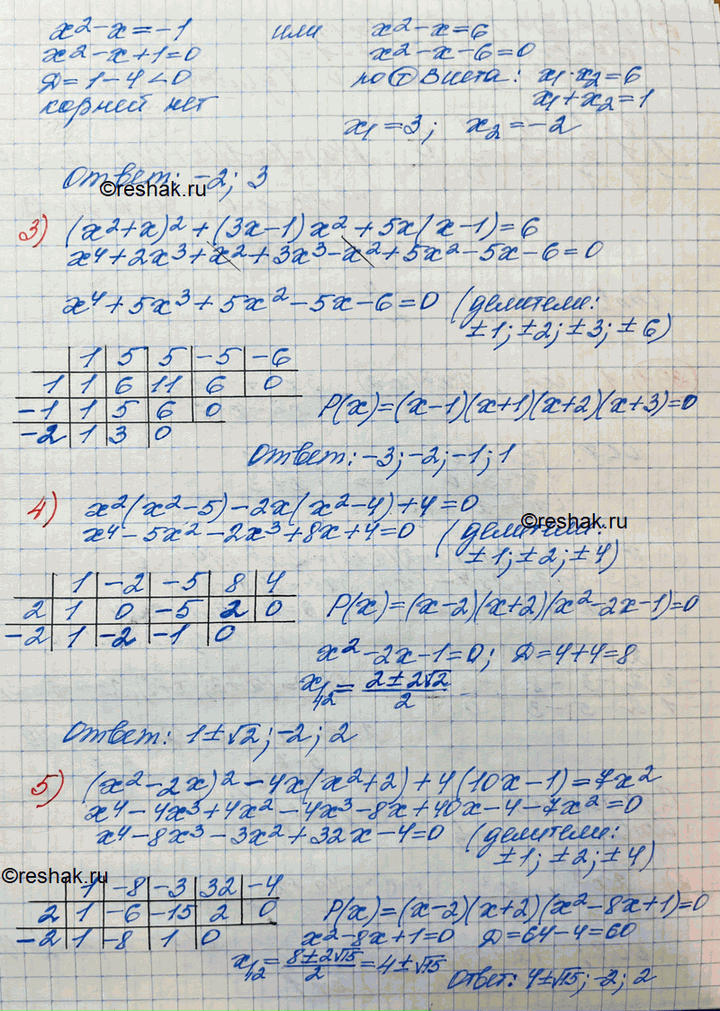 x² - x = -1 или x² - x = 6
x² - x + 1 = 0 x² - x - 6 = 0
Д = 1 - 4 < 0 по Ⓣ Виета: x₁ · x₂ = 6
корней нет x₁ + x₂ = 1
x₁ = 3; x₂ = -2
Ответ: -2; 3
©reshak.ru
3) (x² + x)² + (3x - 1) x² + 5x (x - 1) = 6
x⁴ + 2x³ + x² + 3x³ - x² + 5x² - 5x - 6 = 0
x⁴ + 5x³ + 5x² - 5x - 6 = 0 (делители:
±1; ±2; ±3; ±6)
1 5 5 -5 -6
1 1 6 11 6 0
-1 1 5 6 0 P(x) = (x-1)(x+1)(x+2)(x+3) = 0
-2 1 3 0
Ответ: -3; -2; -1; 1
4) x² (x² - 5) - 2x (x² - 4) + 4 = 0
©reshak.ru
x⁴ - 5x² - 2x³ + 8x + 4 = 0 (делители:
±1; ±2; ±4)
1 -2 -5 8 4
2 1 0 -5 2 0 P(x) = (x-2)(x+2)(x² - 2x - 1) = 0
-2 1 -2 -1 0
x² - 2x - 1 = 0; Д = 4 + 4 = 8
x₁,₂ = (2 ± 2√2)/2
Ответ: 1 ± √2; -2; 2
5) (x² - 2x)² - 4x (x² + 2) + 4 (10x - 1) = 7x²
x⁴ - 4x³ + 4x² - 4x³ - 8x + 40x - 4 - 7x² = 0
x⁴ - 8x³ - 3x² + 32x - 4 = 0 (делители:
±1; ±2; ±4)
©reshak.ru
1 -8 -3 32 -4
2 1 -6 -15 2 0 P(x) = (x-2)(x+2)(x² - 8x + 1) = 0
-2 1 -8 1 0 x² - 8x + 1 = 0 Д = 64 - 4 = 60
x₁,₂ = (8 ± 2√15)/2 = 4 ± √15
Ответ: 4 ± √15; -2; 2